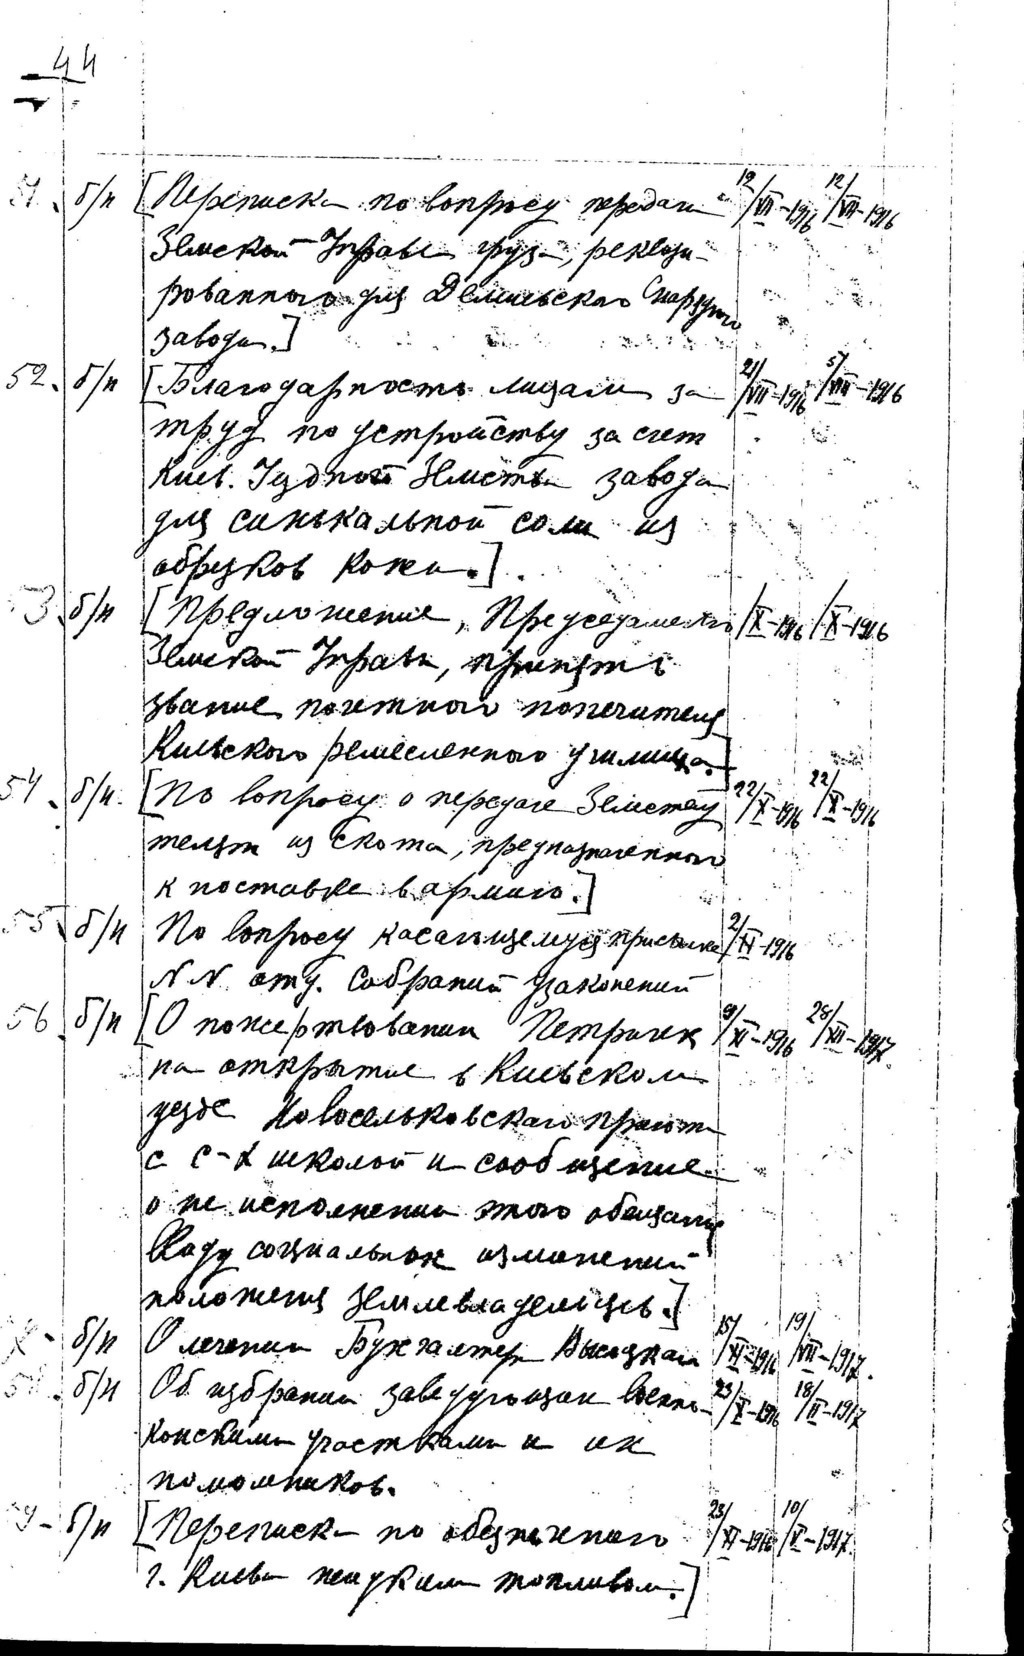 44
51. б/н [Переписка по вопросу передачи 12/VII-1916 12/VII-1916
Земской Управе груза, реквизи-
рованного для Снарядного
завода.]
52. б/н [Благодарность лицам за 21/VII-1916 5/VIII-1916
труд по устройству за счет
Киев. Уездной Земства завода
для соли из
обрезков кожи.]
53 б/н [Предложение, Председателю /X-1916 /X-1916
Земской Управы, принять
звание почетного попечителя
Киевского ремесленного училища.]
54. б/н. [По вопросу о передаче Земству 22/X-1916 22/X-1916
телят из скота, предназначенного
к поставке в армию.]
55. б/н По вопросу касающемуся присылке 2/XI-1916
N N отд. Собраний узаконений
56. б/н [О пожертвовании Петричек 9/XI-1916 28/XII-1917.
на открытие в Киевском
уезде Новосельковского приюта
с с-х школой и сообщение
о не исполнении этого обещания
ввиду социальных изменений
положения землевладельцев.]
б/н О лечении Бухгалтера 15/XI-1916 19/VII-1917.
58. б/н Об избрании заведующих военно- 23/X-1916 18/II-1917
конскими участками и их
помощников.
59- б/н [Переписка по 23/XI-1916 10/V-1917.
г. Киева жидким топливом.]